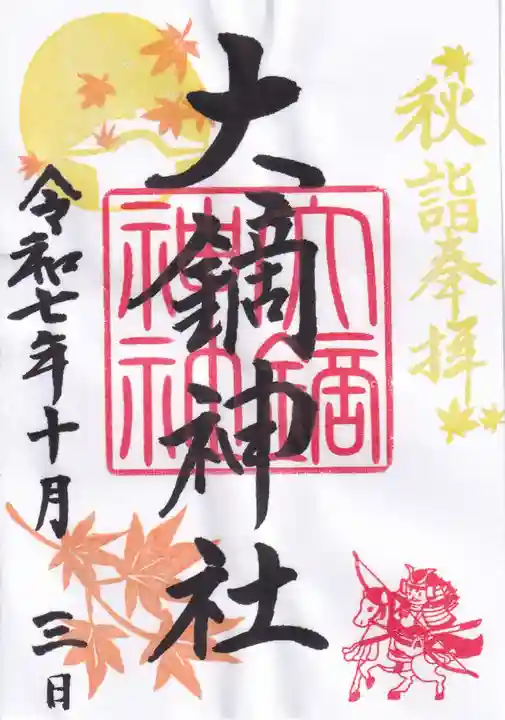 秋詣奉拝
大鏑神社
大鏑
神社
令和七年十月三日